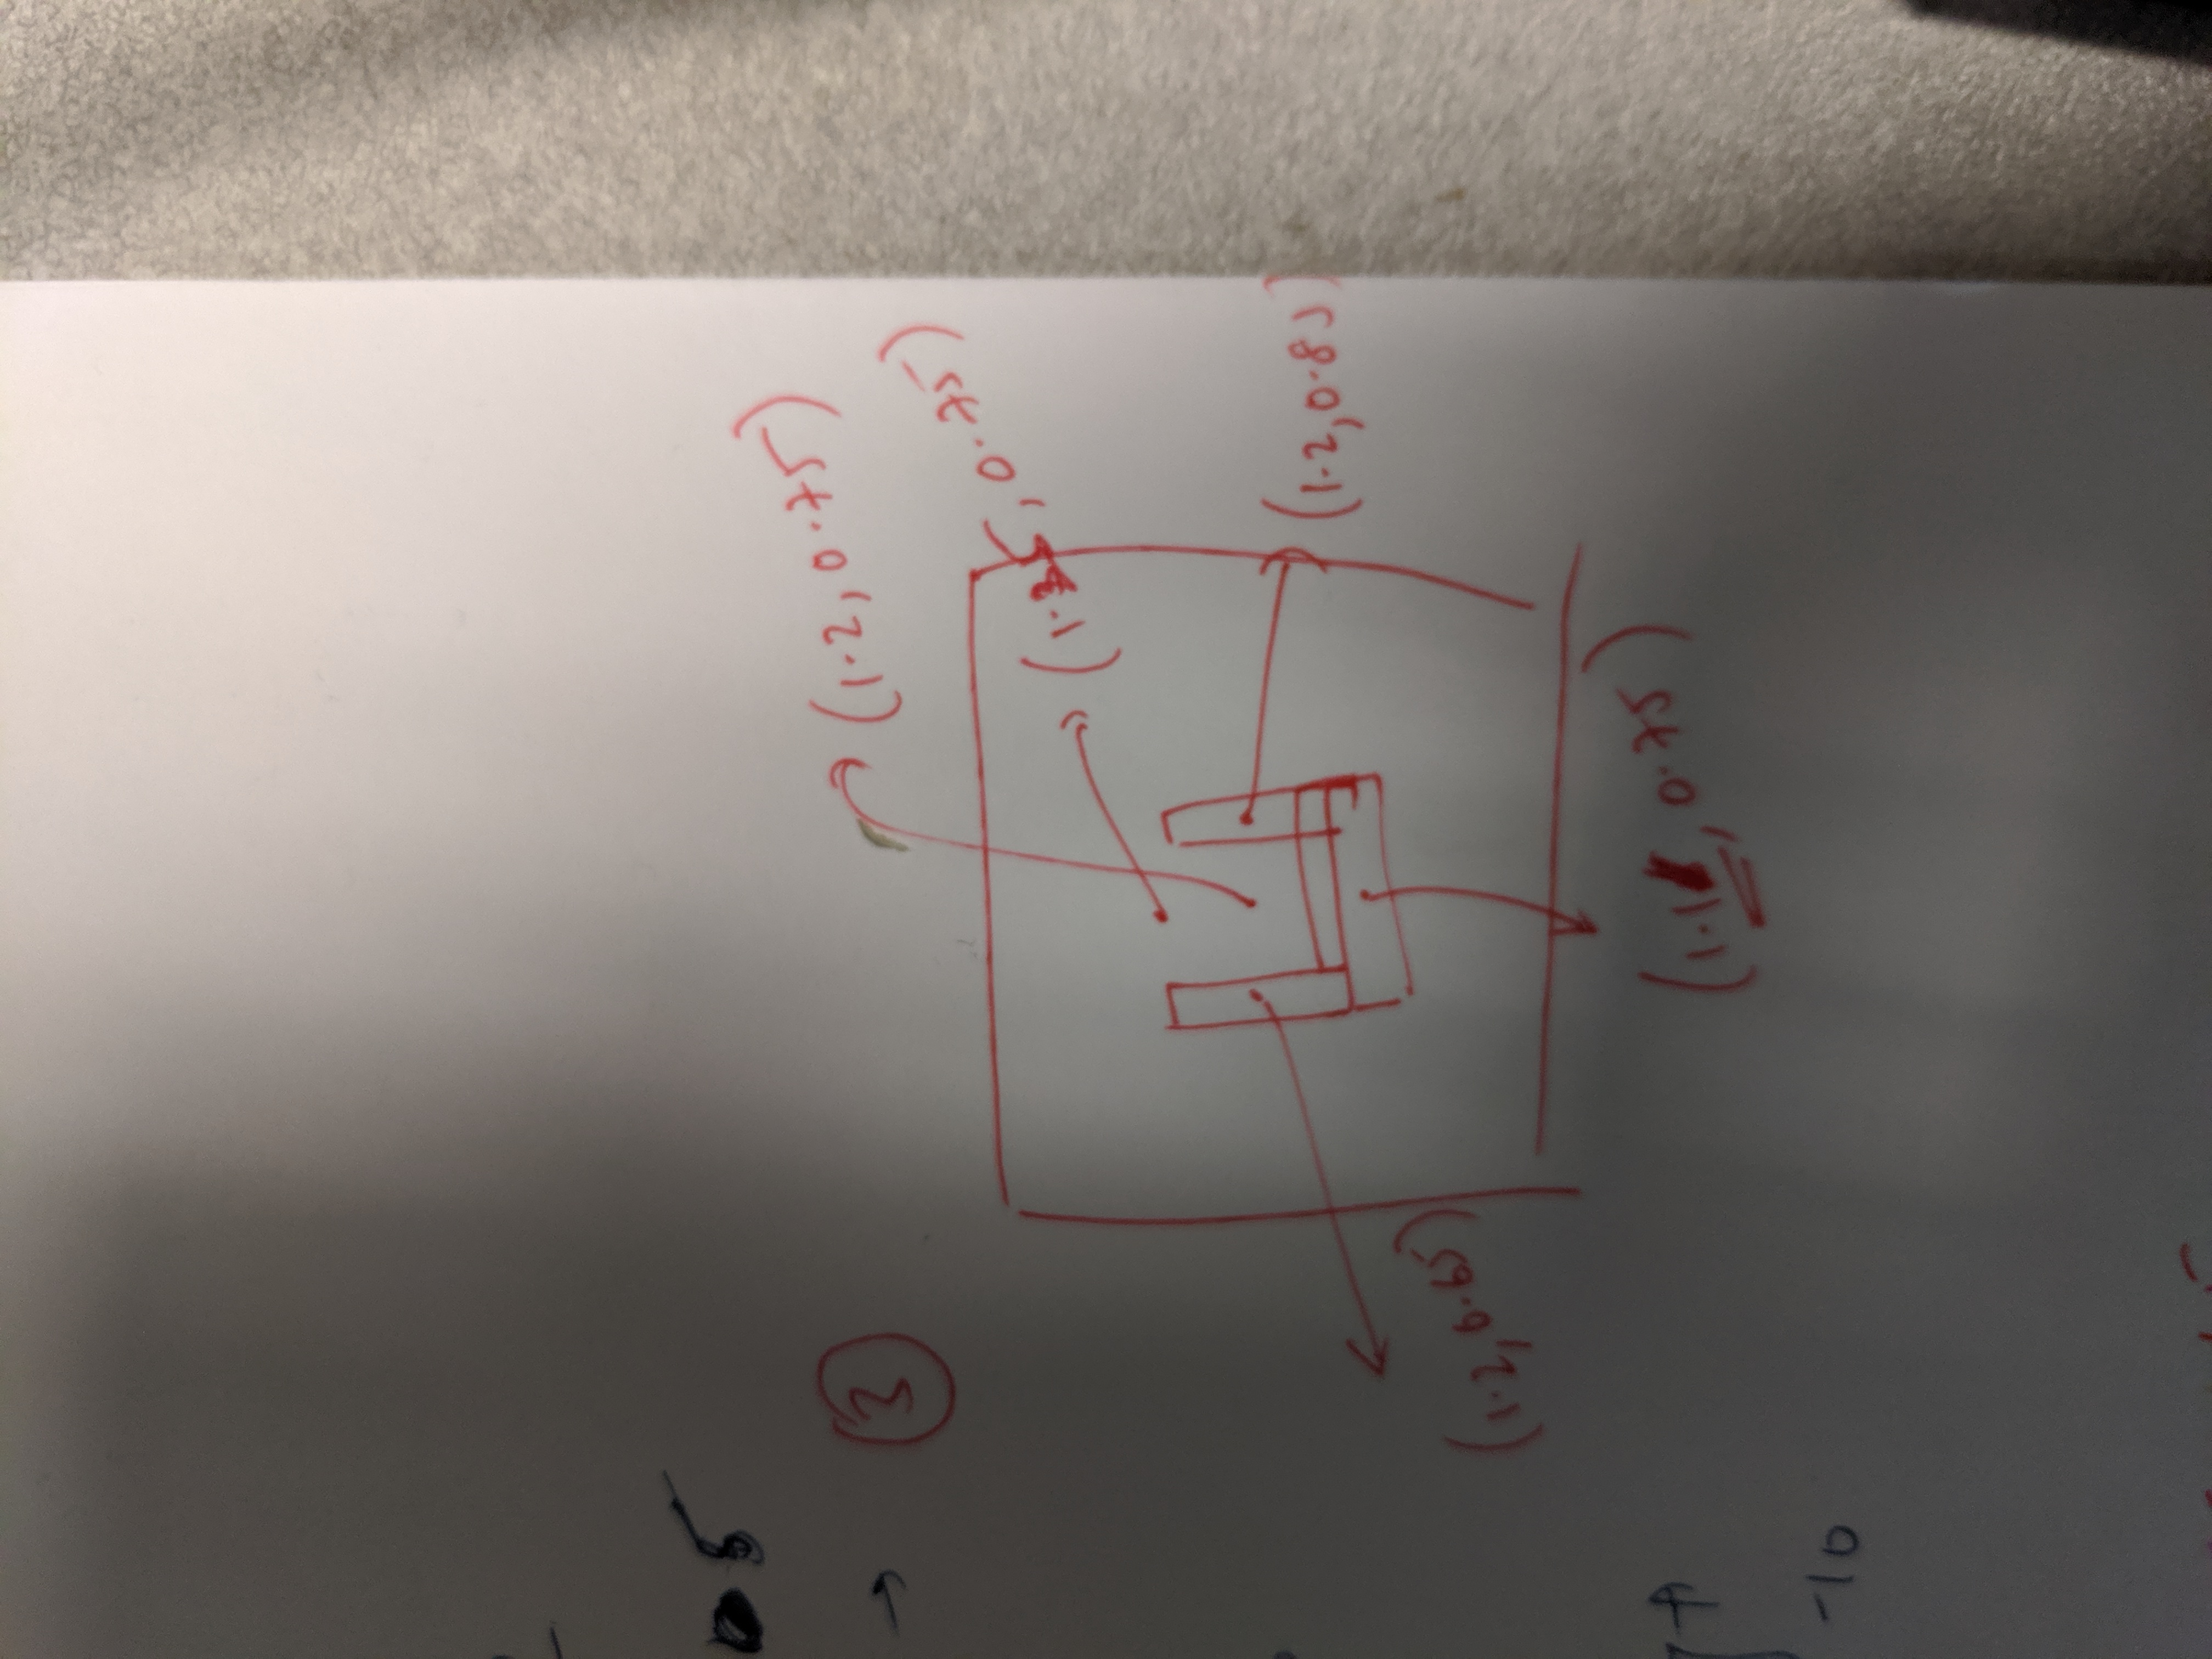 5
→ (3)
(1.2, 0.75)
(1.35, 0.75)
(1.2, 0.85)
(1.2, 0.65)
(1.1, 0.75)
-10